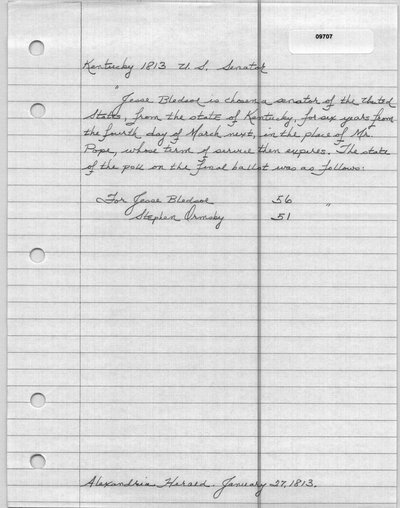 09707
Kentucky 1813 U. S. Senator
"Jesse Bledsoe is chosen a senator of the United
States, from the state of Kentucky, for six years from
the fourth day of March next, in the place of Mr.
Pope, whose term of service then expires. The state
of the poll on the final ballot was as follows:
For Jesse Bledsoe 56 "
Stephen Ormsby 51
Alexandria Herald. January 27, 1813.